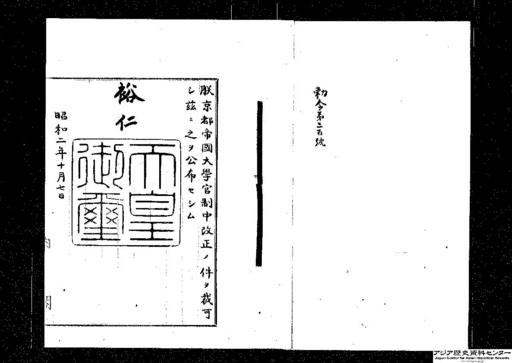 勅令第三百號
朕京都帝國大學官制中改正ノ件ヲ裁可
シ茲ニ之ヲ公布セシム
裕仁
天皇御璽
昭和二年十月七日
アジア歴史資料センター
Japan Center for Asian Historical Records